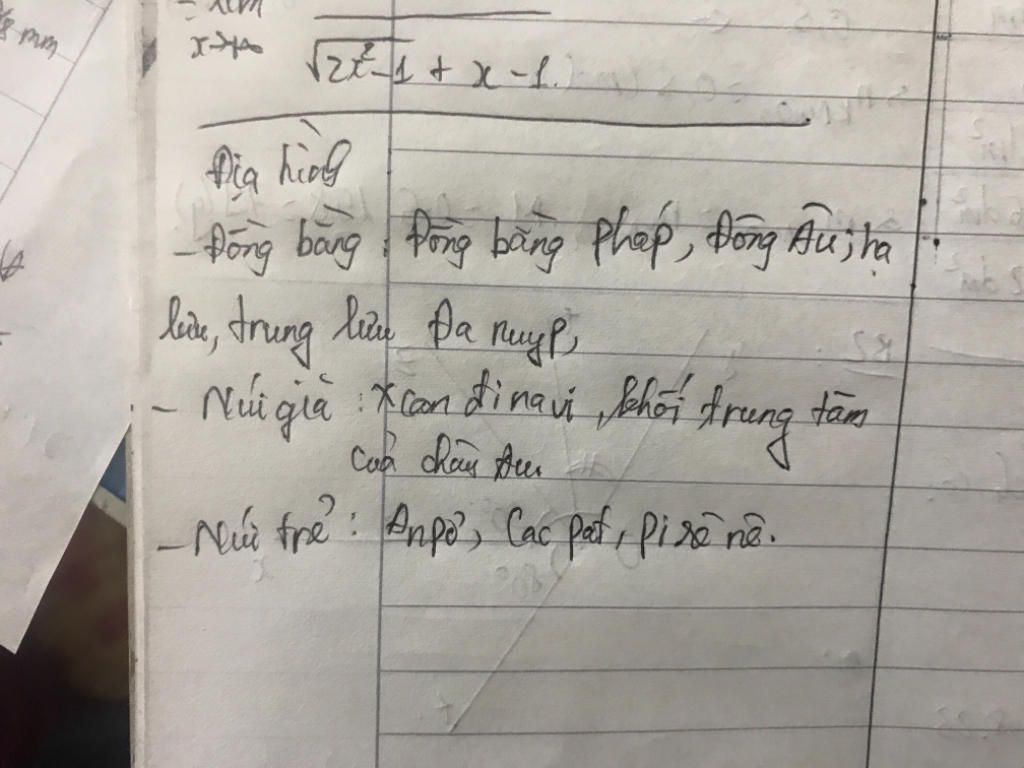 lim
x→+∞
√2x²-1 + x - 1
Địa hình
- Đồng bằng : Đồng bằng Pháp, Đông Âu; hạ
lưu, trung lưu Đa nuyp,
- Núi già : Xcan đi navi, khối trung tâm
của châu Âu
- Núi trẻ : Anpơ, Cac pat, Pi rê nê.